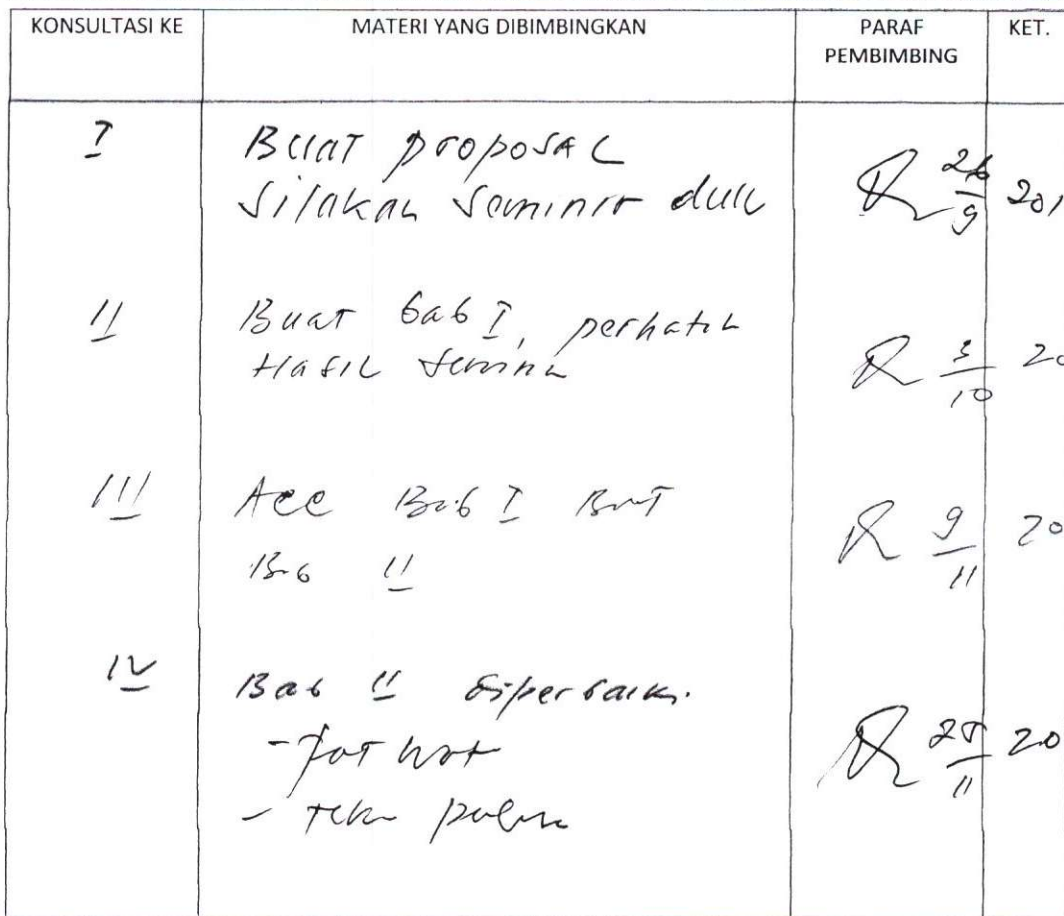 KONSULTASI KE MATERI YANG DIBIMBINGKAN PARAF PEMBIMBING KET.
I Buat proposal
silakan seminar dulu 26/9 201
II Buat bab I, perhatik
Hasil semina 3/10 20
III Acc Bab I Buat
Bab II 9/11 20
IV Bab II diperbaiki.
- fot not 25/11 20
- tekn